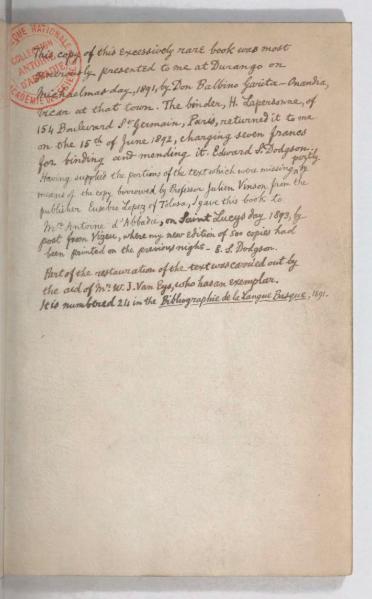 This copy of this excessively rare book was most
generously presented to me at Durango on
Michaelmas day, 1891, by Don Balbino Garita-Onandia,
vicar at that town. The binder, H. Lapersonne, of
154 Boulevard St Germain, Paris, returned it to me
on the 15th of June 1892, charging seven francs
for binding and mending it. Edward S. Dodgson.
Having supplied the portions of the text which were missing, partly by
means of the copy borrowed by Professor Julien Vinson from the
publisher Eusebio Lopez of Tolosa, I gave this book to
Mr. Antoine d'Abbadie, on Saint Lucy's day 1893, by
post from Vizeu, where my new edition of 500 copies had
been printed on the previous night - E. S. Dodgson.
Part of the restauration of the text was carried out by
the aid of Mr. W. J. Van Eys, who has an exemplar.
It is numbered 24 in the Bibliographie de la Langue Basque, 1891.
COLLECTION
ANTOINE
D'ABBADIE